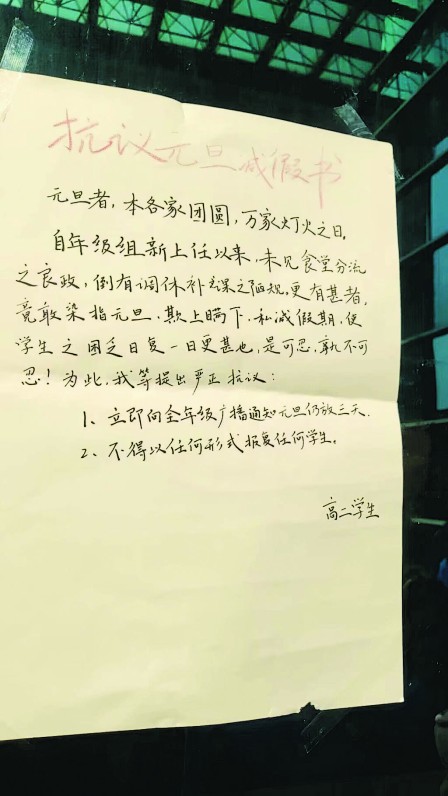 抗议元旦减假书
元旦者，本各家团圆，万家灯火之日。
自年级组新上任以来，未见食堂分流
之良政，倒有调休补课之陋规。更有甚者，
竟敢染指元旦，欺上瞒下，私减假期，使
学生之困乏日复一日更甚也，是可忍，孰不可
忍！为此，我等提出严正抗议：
1、立即向全年级广播通知元旦仍放三天.
2、不得以任何形式报复任何学生。
高二学生